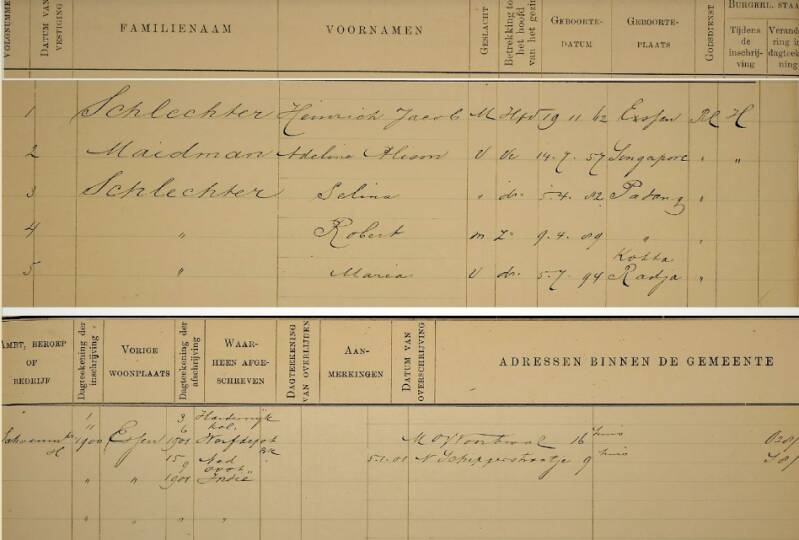 VOLGNUMMER
DATUM VAN VESTIGING
FAMILIENAAM
VOORNAMEN
GESLACHT
Betrekking to het hoofd van het gezi
GEBOORTE-DATUM
GEBOORTE-PLAATS
GODSDIENST
BURGERL. STAA
Tijdens de inschrij-ving
Verand ring i dagteek ning
1 Schlechter Heinrich Jacob M Hfd 19 11 62 Essen H
2 Maidman Adelina Alison V 14.7.57 Singapore " "
3 Schlechter Selina " dr. 82 Padang "
4 " Robert m z. 9.4.89 " "
Kotta
5 " Maria V dr. 5.7.94 Radja "
AMBT, BEROEP OF BEDRIJF
Dagteekening der inschrijving
VORIGE WOONPLAATS
Dagteekening der afschrijving
WAAR-HEEN AFGE-SCHREVEN
DAGTEEKENING VAN OVERLIJDEN
AAN-MERKINGEN
DATUM VAN OVERSCHRIJVING
ADRESSEN BINNEN DE GEMEENTE
1 3 Harderwijk
11 6 Kol.
1900 Essen 1901 Werfdepot 16 huis
15 Ned 9 huis
9 oost
" " 1901 Indië
" " " "